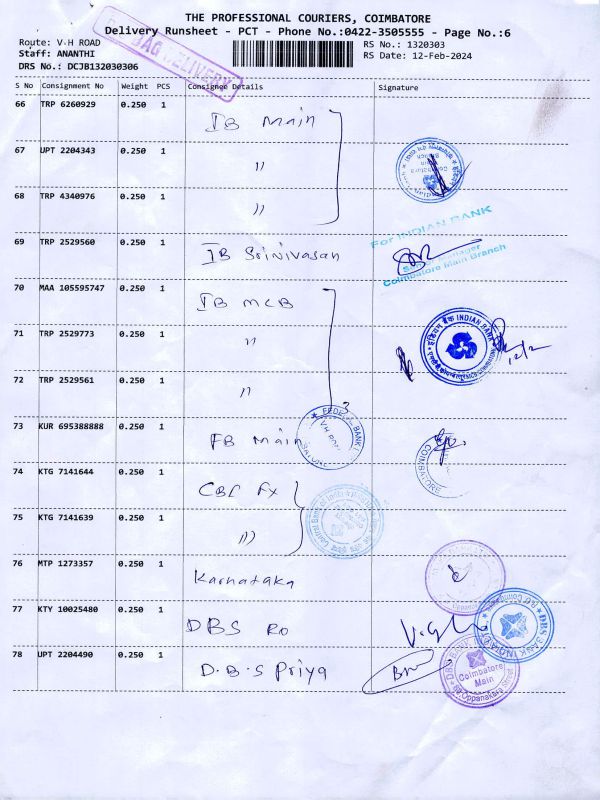 THE PROFESSIONAL COURIERS, COIMBATORE
Delivery Runsheet - PCT - Phone No.:0422-3505555 - Page No.:6
Route: V H ROAD
Staff: ANANTHI
DRS No.: DCJB132030306
RS No.: 1320303
RS Date: 12-Feb-2024
BAG DELIVERY
S No Consignment No Weight PCS Consignee Details Signature
66 TRP 6260929 0.250 1 IB Main
67 UPT 2204343 0.250 1 "
68 TRP 4340976 0.250 1 "
For INDIAN BANK
Manager
Coimbatore Main Branch
69 TRP 2529560 0.250 1 IB Srinivasan
70 MAA 105595747 0.250 1 IB MCB
INDIAN BANK
71 TRP 2529773 0.250 1 "
12/2
72 TRP 2529561 0.250 1 "
3
73 KUR 695388888 0.250 1 FB Main
74 KTG 7141644 0.250 1 CBI FX
Central Bank of India
75 KTG 7141639 0.250 1 "
76 MTP 1273357 0.250 1 Karnataka
77 KTY 10025480 0.250 1 DBS RO
DBS BANK INDIA
78 UPT 2204490 0.250 1 D.B.S Priya
Coimbatore
Main
Oppanakara Street